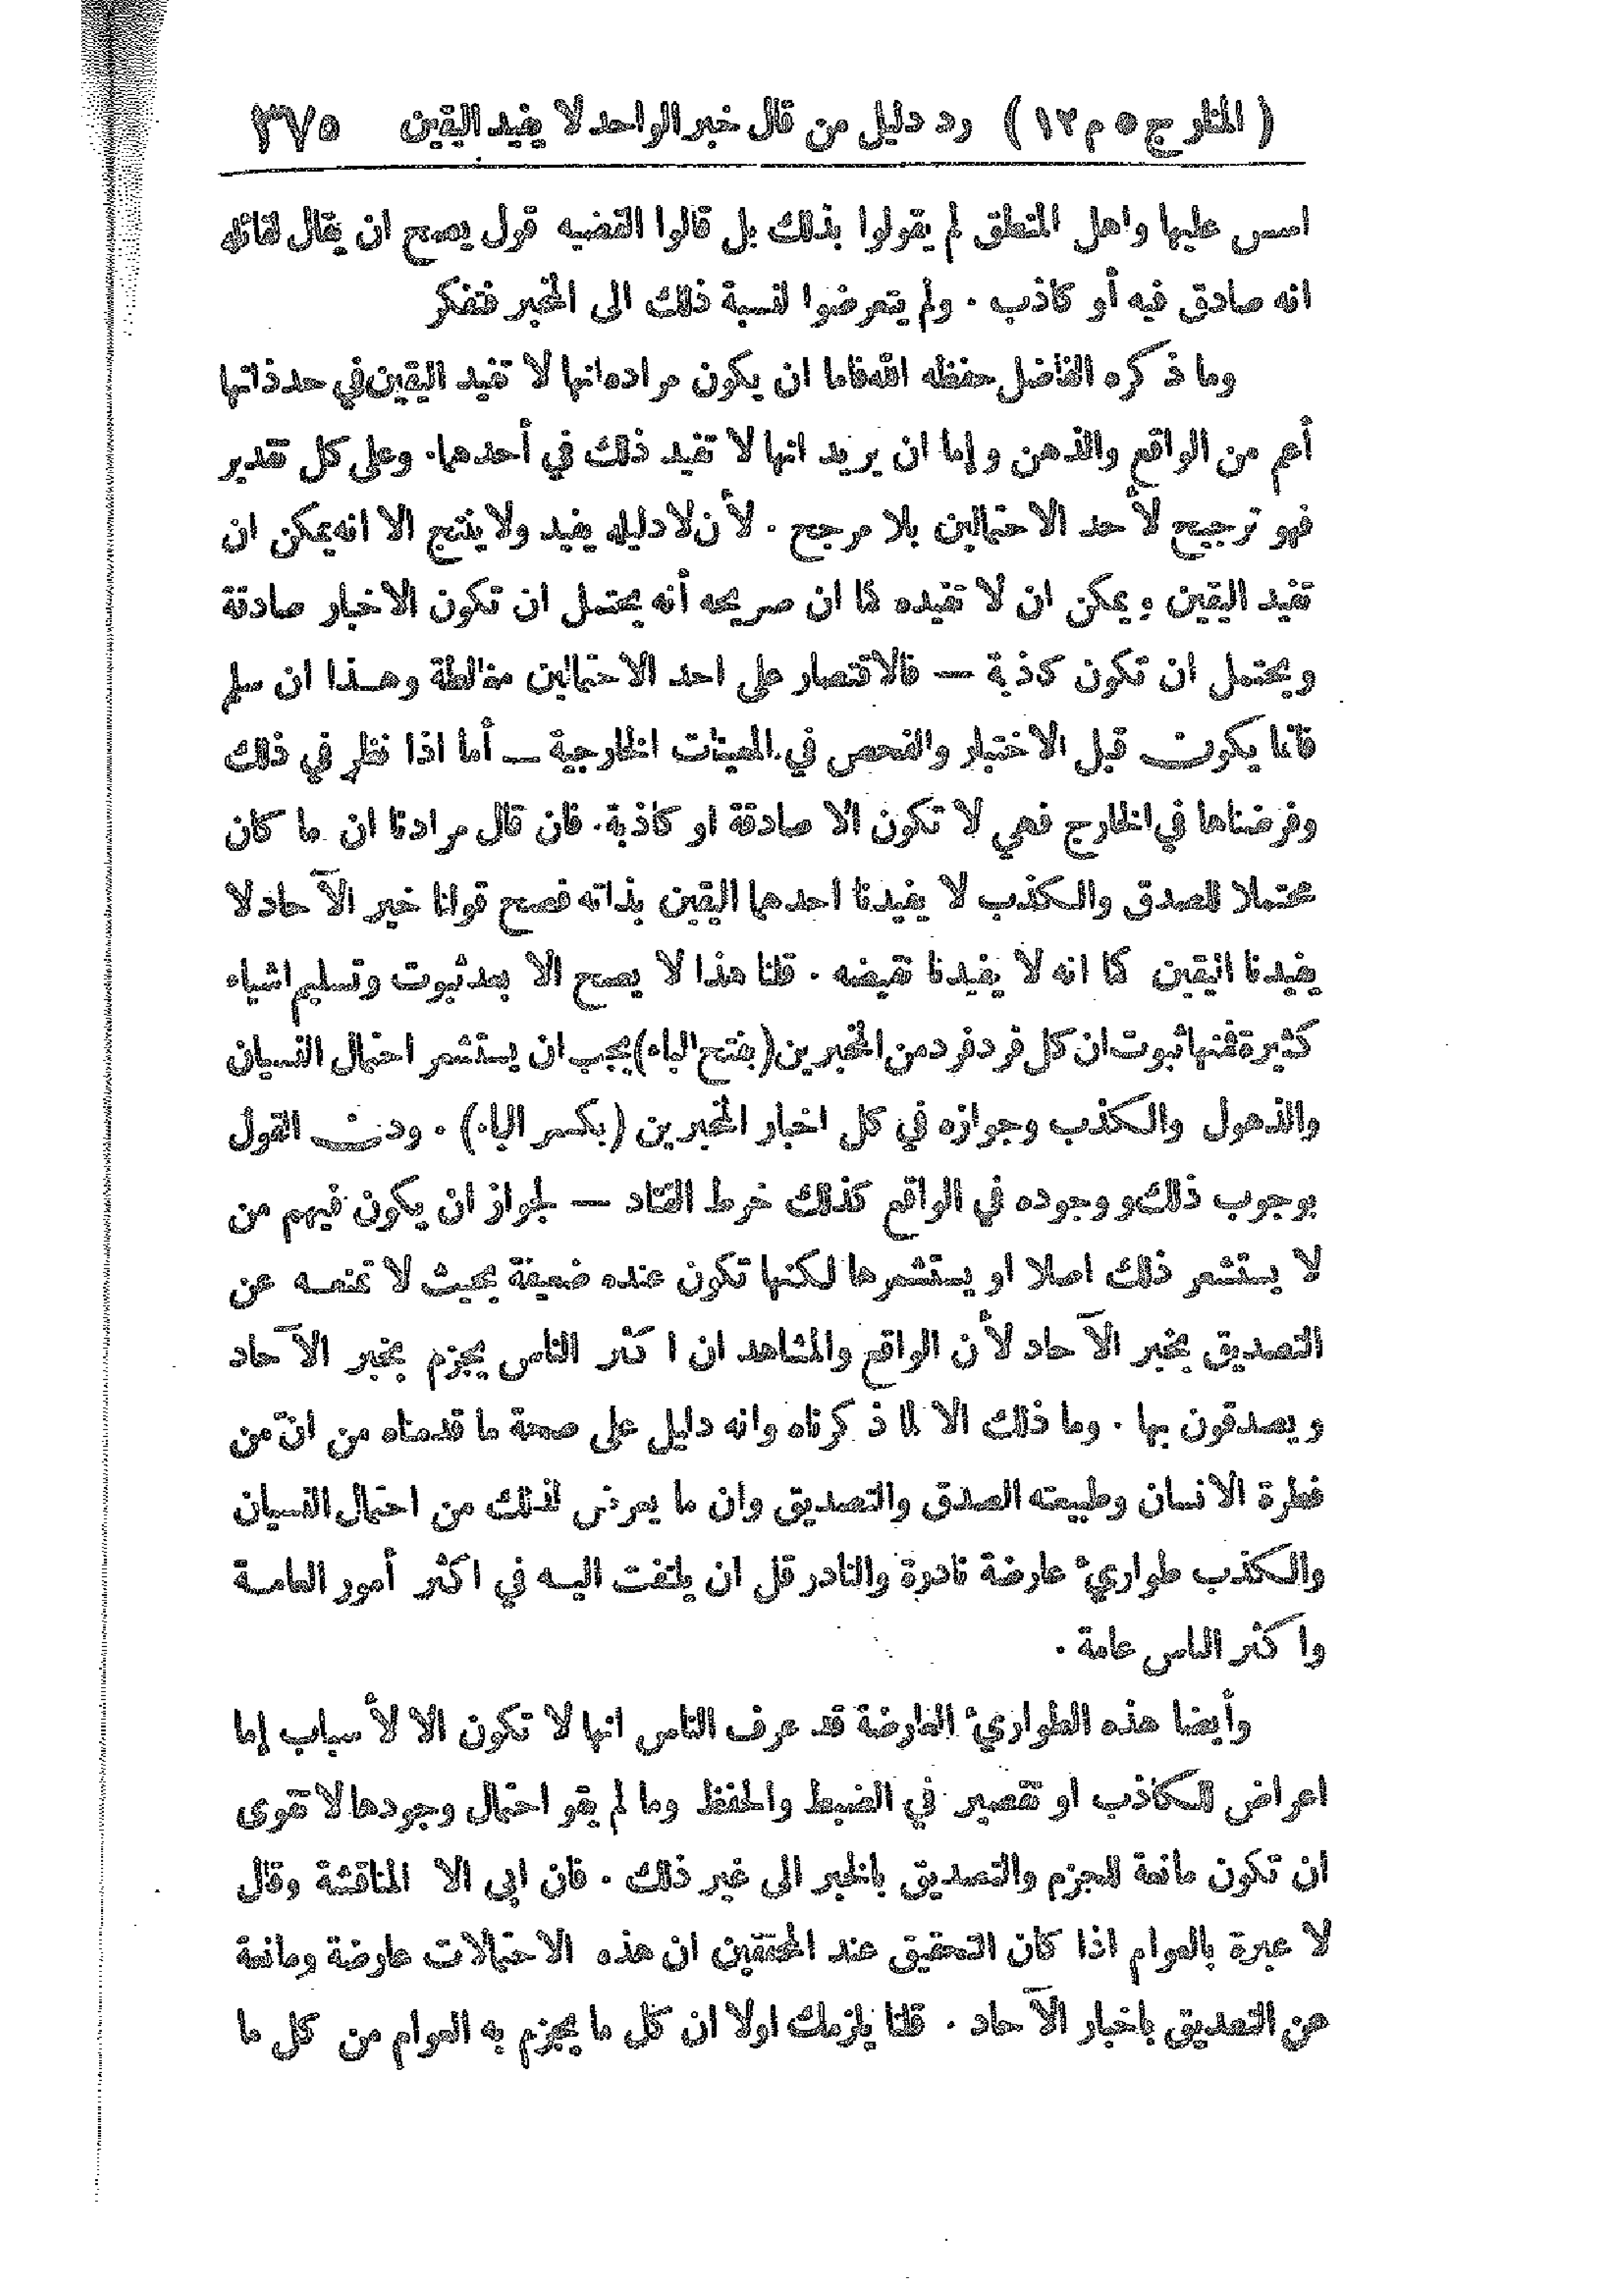 ( المنار ج ٥ م ١٢ ) رد دليل من قال خبر الواحد لا يفيد اليقين ٣٧٥
اسس عليها واهل المنطق لم يقولوا بذلك بل قالوا القضيه قول يصح ان يقال لقائله
انه صادق فيه أو كاذب . ولم يتعرضوا لنسبة ذلك الى المخبر فتفكر
وما ذكره الفاضل حفظه الله فاما ان يكون مراده انها لا تفيد اليقين في حد ذاتها
أعم من الواقع والذهن وإما ان يريد انها لا تفيد ذلك في أحدهما . وعلى كل تقدير
فهو ترجيح لأحد الاحتمالين بلا مرجح . لأن لا دليله يفيد ولا ينتج الا انه يمكن ان
تفيد اليقين ويمكن ان لا تفيده كما ان صريحه أنه يحتمل ان تكون الاخبار صادقة
ويحتمل ان تكون كاذبة — فالاقتصار على احد الاحتمالين مغالطة وهذا ان سلم
فانما يكون قبل الاختبار والفحص في المعينات الخارجية — أما اذا نظر في ذلك
وفرضناها في الخارج فهي لا تكون الا صادقة او كاذبة . فان قال مرادنا ان ما كان
محتملا للصدق والكذب لا يفيدنا احدهما اليقين بذاته فصح قولنا خبر الآحاد لا
يفيدنا اليقين كما انه لا يفيدنا نقيضه . قلنا هذا لا يصح الا بعد ثبوت وتسليم اشياء
كثيرة فمنها ثبوت ان كل فرد فرد من المخبرين (بفتح الباء) يجب ان يستشعر احتمال النسيان
والذهول والكذب وجوازه في كل اخبار المخبرين (بكسر الباء) . ودون القول
بوجوب ذلك ووجوده في الواقع كذلك خرط القتاد — لجواز ان يكون فيهم من
لا يستشعر ذلك اصلا او يستشعرها لكنها تكون عنده ضعيفة بحيث لا تمنعه عن
التصديق بخبر الآحاد لأن الواقع والمشاهد ان اكثر الناس يجزم بخبر الآحاد
ويصدقون بها . وما ذلك الا لما ذكرناه وانه دليل على صحة ما قدمناه من ان من
فطرة الانسان وطبيعته الصدق والتصديق وان ما يعرض لذلك من احتمال النسيان
والكذب طوارئ عارضة نادرة والنادر قل ان يلتفت اليه في اكثر أمور العامة
واكثر الناس عامة .
وأيضا هذه الطوارئ العارضة قد عرف الناس انها لا تكون الا لأسباب إما
اعراض للكاذب او تقصير في الضبط والحفظ وما لم يقو احتمال وجودها لا تقوى
ان تكون مانعة للجزم والتصديق بالخبر الى غير ذلك . فان ابى الا المناقشة وقال
لا عبرة بالعوام اذا كان التحقيق عند المحققين ان هذه الاحتمالات عارضة ومانعة
عن التصديق باخبار الآحاد . قلنا يلزمك اولا ان كل ما يجزم به العوام من كل ما